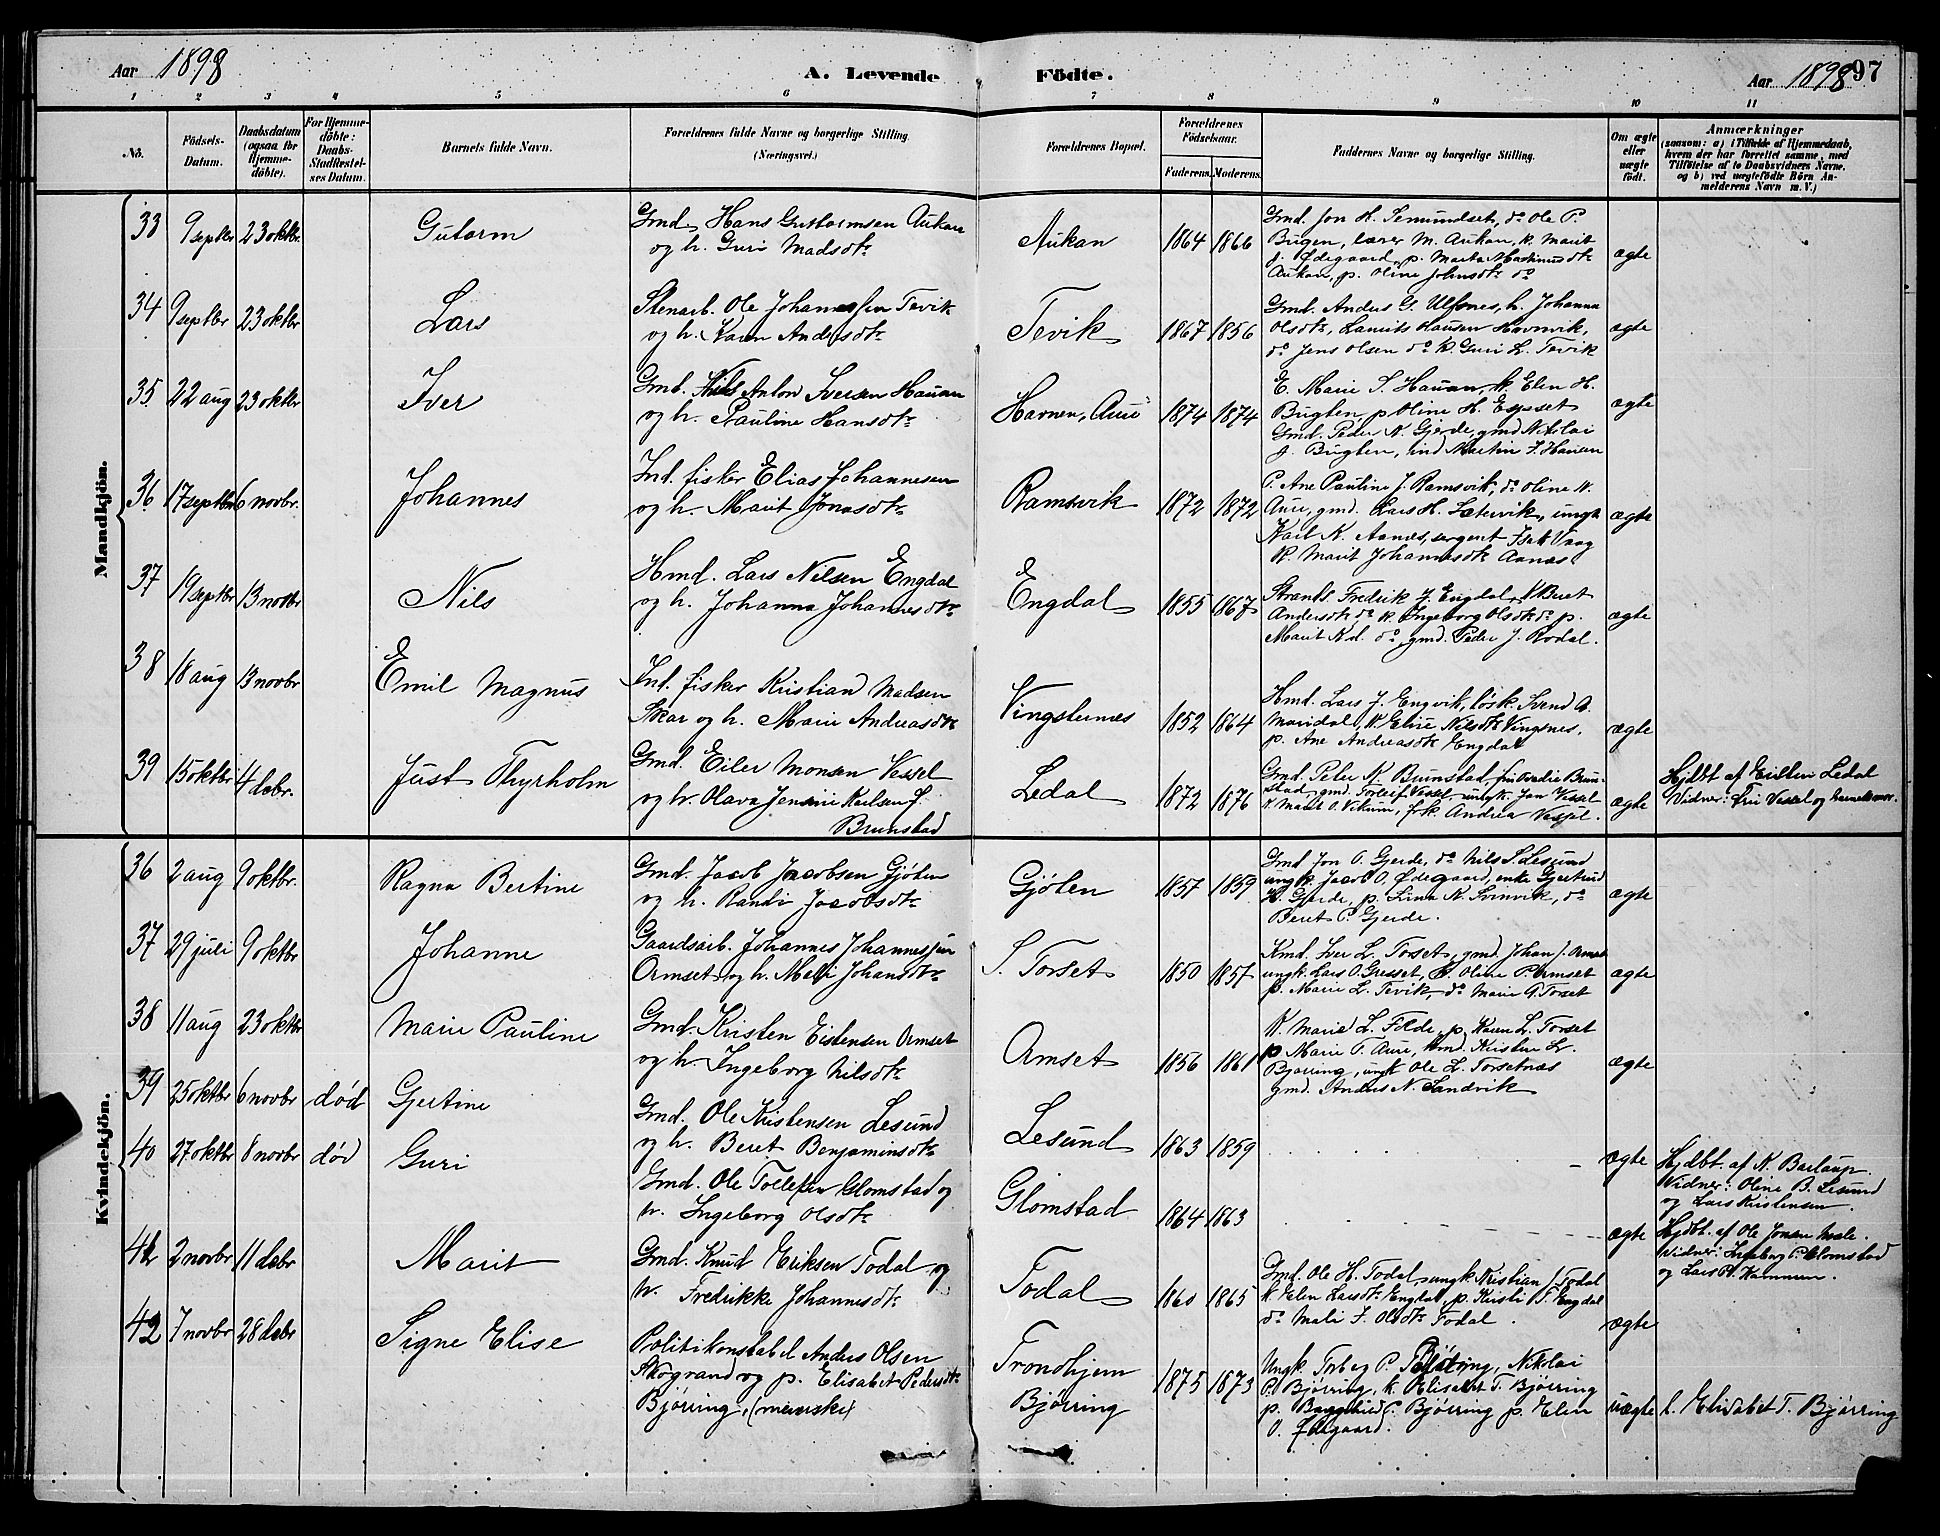 Aar 1898 A. Levende Födte. Aar 1898 97
1 2 3 4 5 6 7 8 9 10 11
No.
Födsels-
Datum.
Daabsdatum
(ogsaa for
Hjemme-
döbte).
For Hjemme-
döbte:
Daabs-
Stadfæstel-
ses Datum.
Barnets fulde Navn.
Forældrenes fulde Navne og borgerlige Stilling.
(Næringsvei.)
Forældrenes Bopæl.
Forældrenes
Födselsaar.
Faderens. Moderens.
Faddernes Navne og borgerlige Stilling.
Om ægte
eller
uægte
födt.
Anmærkninger
(saasom: a) i Tilfælde af Hjemmedaab,
hvem der har forrettet samme, med
Tilföielse af to Daabsvidners Navne,
og b) ved uægtefödte Börn An-
melderens Navn m. V.)
Mandkjön.
33 9 septbr 23 oktbr. Gutorm
Gmd. Hans Guttormsen Aukan
og h. Guri Madsdtr
Aukan 1864 1866
Gmd. Jon H. Semundset, do Ole P.
Bugen, lærer M. Aukan, k. Marit
J. Ødegaard, p. Marta Martinusdtr
Aukan, p. Oline Johnsdtr do
ægte
34 9 septbr 23 oktbr Lars
Stenarb. Ole Johannessen Tevik
og h. Karen Andersdtr
Tevik 1867 1856
Gmd. Anders G. Ulfsnes, h. Johanna
Olsdtr, Laurits Hansen Havnvik,
do Jens Olsen do k. Guri L. Tevik
ægte
35 22 aug 23 oktbr Iver
Gmd. Nils Anton Iversen Hauan
og h. Pauline Hansdtr
Havnen, Aure 1874 1874
E. Marie S. Hauan, k. Elen H.
Bugten, p Oline H. Espset
Gmd. Peder N. Gjerde, gmd Nikolai
J. Bugten, ind Martin I. Hauan
ægte
36 17 septbr 6 novbr. Johannes
Ind. fisker Elias Johannesen
og h. Marit Jonasdtr
Ramsvik 1872 1872
P. Ane Pauline J. Ramsvik, do Oline N.
Aure, gmd. Lars H. Sætervik, ungk
Karl K. Aanes, sergent Isak Vaag
k. Marit Johannesdtr Aanæs
ægte
37 19 septbr 13 novbr Nils
Hmd. Lars Nilsen Engdal
og h. Johanna Johannesdtr
Engdal 1855 1867
Strands. Fredrik J. Engdal, k. Beret
Andersdtr do k. Ingeborg Olsdtr do p.
Marit K.d. do, gmd. Peder J. Rodal.
ægte
38 18 aug 13 novbr Emil Magnus
Ind. fisker Kristian Madsen
Skar og h. Marie Andreasdtr
Vingsternæs 1852 1864
Hmd. Lars J. Engvik, løsk. Svend A.
Maridal, k. Elise Nilsdtr Vingsnes,
p. Ane Andreasdtr Engdal
ægte
39 15 oktbr 4 debr. Just Thyrholm
Gmd. Eiler Monsen Vessel
og h. Olava Jensine Karlsen f.
Brunstad
Ledal 1872 1876
Gmd. Peter K. Brunstad, fru Bredie Brun-
stad, gmd. Torleif Vessel, ungk. Jan Vessel
k. Marit O. Vikum, frk. Andrea Vessel.
ægte
Hjdbt af Eristen Ledal
Vidner: Fru Vessel og barnets mor.
Kvindekjön.
36 2 aug 9 oktbr. Ragna Bertine
Gmd. Jacob Jacobsen Gjølen
og h. Randi Jacobsdtr
Gjølen 1857 1859
Gmd Jon O. Gjerde, do Nils S. Lesund
ungk. Jacob O. Ødegaard, enke Gjertrud
H. Gjerde, p. Lina K. Svinvik, do
Beret P. Gjerde.
ægte
37 29 juli 9 oktbr Johanne
Gaardsarb. Johannes Johannessen
Ormset og h. Mali Johansdtr
S. Torset 1850 1857
Kmd. Iver L. Torset, gmd. Johan J. Ormset
ungk. Lars O. Gresset, k. Oline P. Ormset
p. Marie L. Tevik, do Marie G. Torset
ægte
38 11 aug 23 oktbr Marie Pauline
Gmd. Kristen Eistensen Ormset
og h. Ingeborg Nilsdtr
Ormset 1856 1861
K. Marie L. Folde, p. Karen L. Torset
p Marie T. Aure, kmd. Kristen Kr.
Bjørring, ungk Ole L. Torsetnæs
gmd. Anders N. Sandvik
ægte
39 25 oktbr 6 novbr død Gjertine
Gmd. Ole Kristensen Lesund
og h. Beret Benjaminsdtr
Lesund 1863 1859
ægte
Hjdbt. af K. Barlaup.
Vidner: Oline B. Lesund
og Lars Kristensen.
40 27 oktbr 8 novbr død Guri
Gmd. Ole Tollefsen Glomstad og
h. Ingeborg Olsdtr
Glomstad 1864 1863
ægte
Hjdbt. af Ole Jonsen Mæle.
Vidner: Ingeborg P. Glomstad
og Lars P. Hammen.
41 2 novbr 11 debr Marit
Gmd. Knud Eriksen Todal og
h. Fredrikke Johannesdtr
Todal 1860 1865
Gmd. Ole H. Todal, ungk Kristian J. Todal
k. Elen Larsdtr Engdal, p. Kirsti T. Engdal
do Mali I. Olsdtr Todal.
ægte
42 7 novbr 28 debr Signe Elise
Politikonstabel Anders Olsen
Skogrand og p. Elisabet Pedersdtr
Bjørring, (meierske)
Trondhjem
Bjørring
1875 1873
Ungk Torberg P. Bjørring, Nikolai
P. Bjørring, k. Elisabet T. Bjørring
p. P. Bjørring p. Elen
O. Ødegaard.
uægte
l. Elisabet T. Bjørring